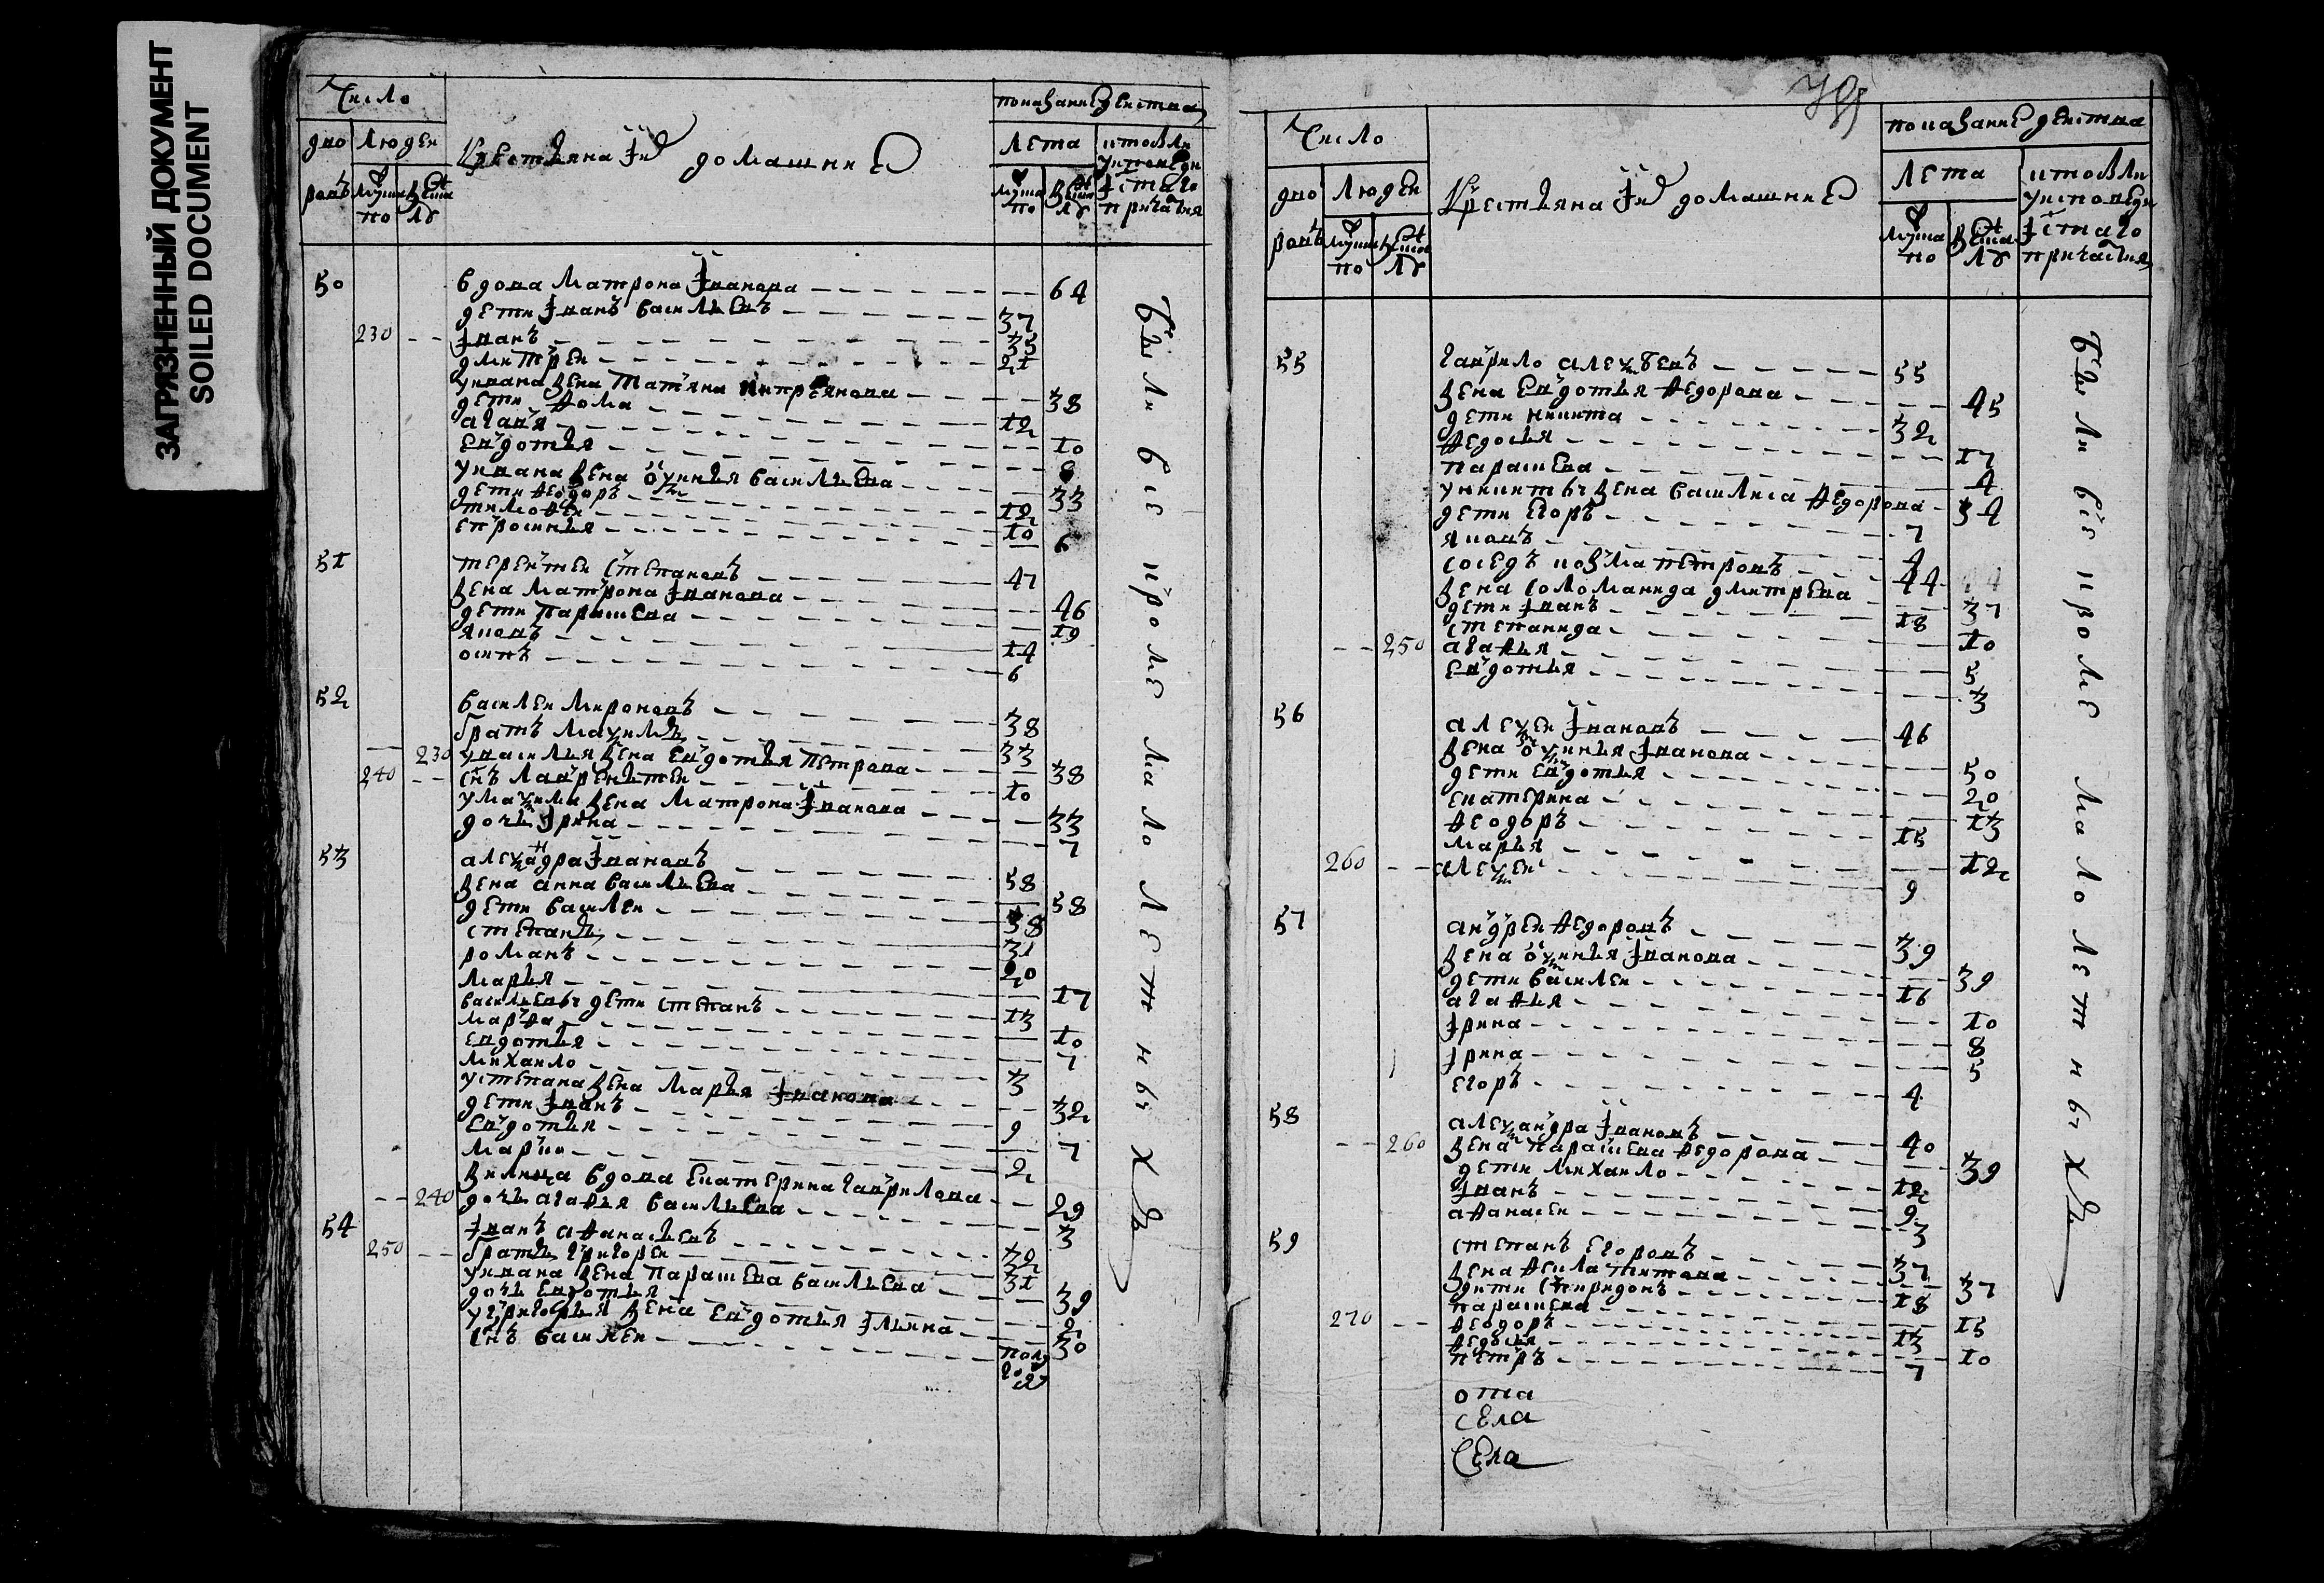 ЗАГРЯЗНЕННЫЙ ДОКУМЕНТ
SOILED DOCUMENT
Число
показание действа
дво Людеи
Крестьяна и их домашние
лета
кто были у исповеди
ровъ мужеска по женска лъ
мужеска по женска лъ
и стаго причастия
50 вдова Матрона Иванова 64
дети Иванъ Васильевъ 37
230 Иванъ 35
Дмитреи 21
у ивана жена Татьяна 38
дети Фома 12
агапья 10
Евдотья 8
у ивана жена Оуксинья Васильева 33
дети Феодоръ 12
тимофеи 10
епросинья 6
51 терентеи Степановъ 47
жена Матрона Иванова 46
дети Парасковея 19
Яковъ 14
осипъ 6
52 Василеи Мироновъ 38
братъ Мауимъ 33
230 у василья жена Евдотья Петрова 38
240 снъ Лаврентеи 10
у мауима жена Матрона Иванова 33
дочь Ирина 7
53 алеуандра Ивановъ 58
жена анна Васильева 58
дети Василеи 38
степанъ 31
романъ 20
Марья 17
Васильевы дети Степанъ 13
Марфа 10
евдотья 7
михаило 3
у степана жена Марья Иванова 32
дети Иванъ 9
Евдотья 7
Марко 2
вдова Екатерина Гаврилова 29
240 дочь агафья Васильева 3
54 Иванъ афанасьевъ 32
250 братъ григореи 31
у ивана жена Парасковея Васильева 39
дочь Евдотья 2
у григорья жена Евдотья Ильина 30
снъ Василеи полу года
Были все кроме малолетныхъ
Число
показание действа
дво Людеи
Крестьяна и их домашние
лета
кто были у исповеди
ровъ мужеска по женска лъ
мужеска по женска лъ
и стаго причастия
55 гаврило алеуеевъ 55
жена Евдотья Федорова 45
дети никита 32
Федосья 17
Парасковея 4
у никиты жена Василиса Федорова 34
дети Егоръ 7
Яковъ 4
соседъ козма петровъ 44
жена соломанида дмитрева 37
дети Иванъ 18
степанида 10
250 агафья 5
Евдотья 3
56 алеуеи Ивановъ 46
жена Оуксинья Иванова 50
дети Евдотья 20
екатерина 13
Феодоръ 15
Марья 12
260 алеуеи 9
57 андреи Федоровъ 39
жена Оуксинья Иванова 39
дети Василеи 16
агафья 10
Ирина 8
Ирина 5
Егоръ 4
58 алеуандра Ивановъ 40
260 жена Парасковея Федорова 39
дети Михаило 12
Иванъ 9
афанасеи 3
59 степанъ Егоровъ 37
жена Фекла титова 37
дити Спиридонъ 18
парасковея 15
270 Феодоръ 13
Федосья 10
петръ 7
ота
села
Села
Были все кроме малолетныхъ